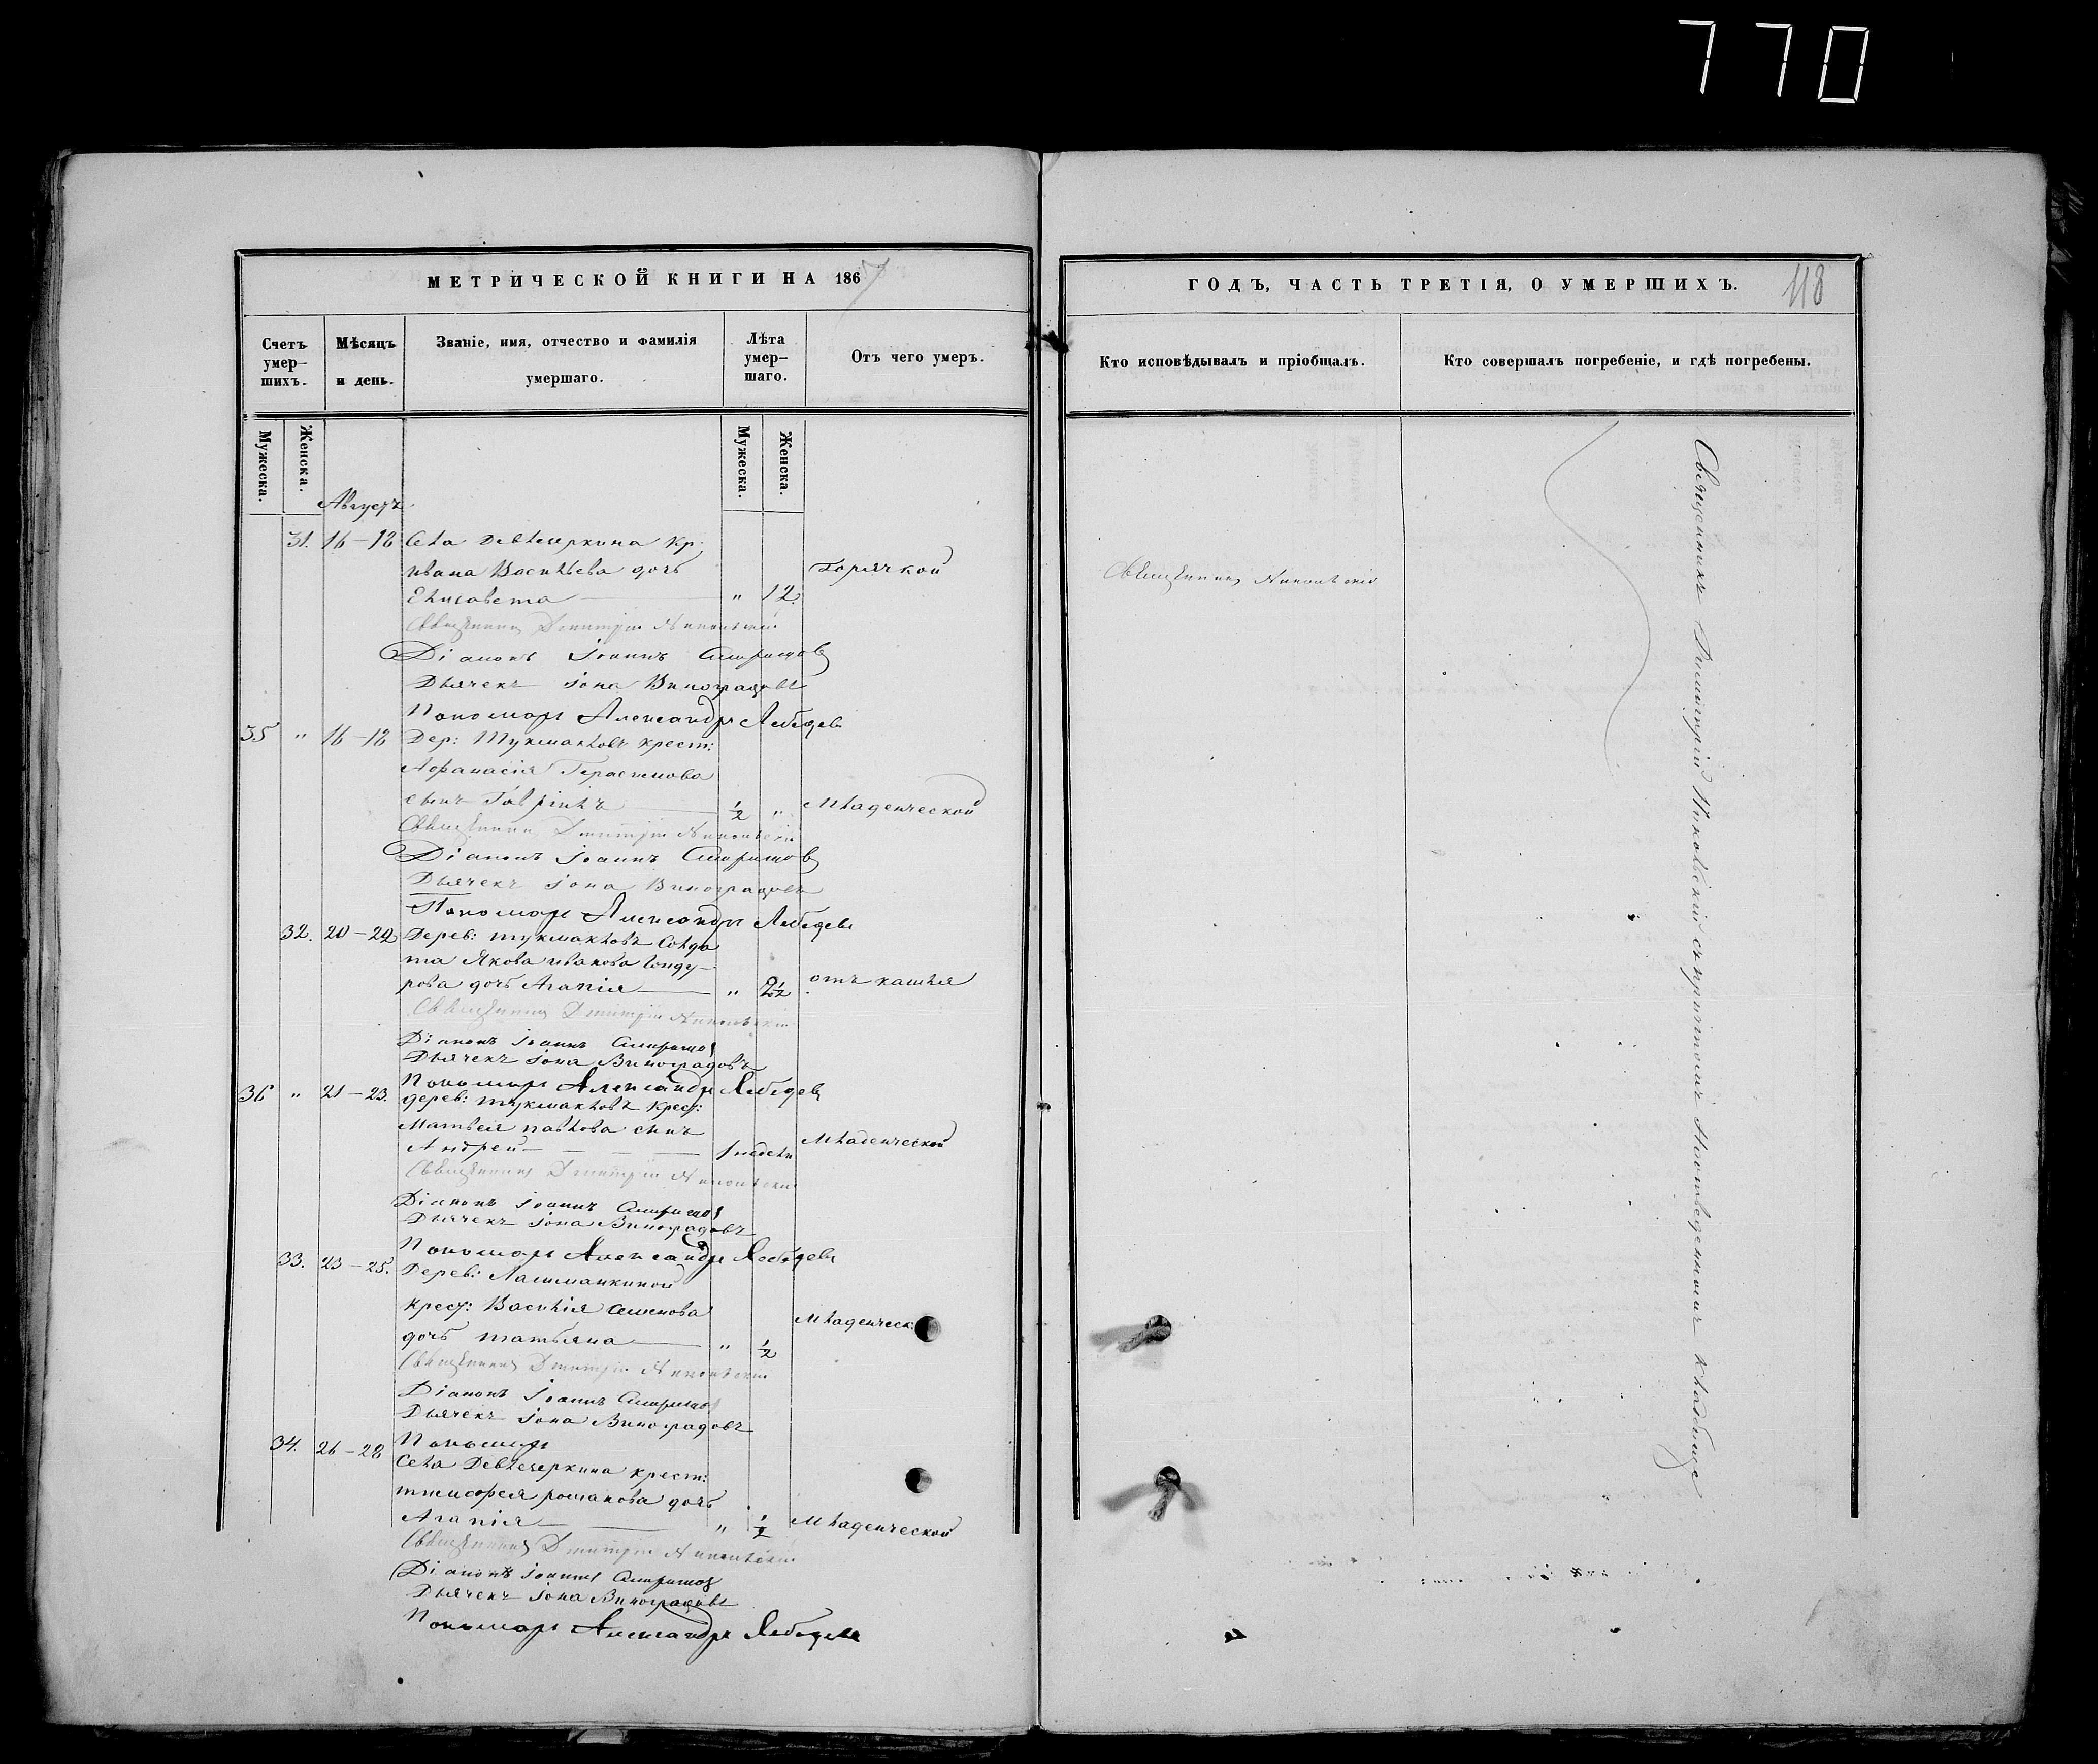 770
МЕТРИЧЕСКОЙ КНИГИ НА 1867
Счетъ умер-шихъ.
Мѣсяцъ и день.
Званіе, имя, отчество и фамилія умершаго.
Лѣта умер-шаго.
Отъ чего умеръ.
Мужеска.
Женска.
Мужеска.
Женска.
Августъ
31. 16-18 Села Девлечеркина кр.
Ивана Васильева дочь Горячкой
Елисавета " 12.
Священникъ Димитрій Никольскій
Діаконъ Іоаннъ
Дьячекъ Іона Виноградовъ
Пономарь Александръ Лебедевъ
35 " 16-18 Дер: Тукмакловъ крест:
Афанасія Герасимова
сынъ Гавріилъ 1/2 " Младенческой
Священникъ Димитрій Никольскій
Діаконъ Іоаннъ
Дьячекъ Іона Виноградовъ
Пономарь Александръ Лебедевъ
32. 20-22 Дерев: Тукмакловъ Солда
та Якова Иванова
рова дочь Агапія " 2 1/2 отъ кашля
Священникъ Димитрій Никольскій
Діаконъ Іоаннъ
Дьячекъ Іона Виноградовъ
Пономарь Александръ Лебедевъ
36 " 21-23. дерев: Тукмакловъ Крест:
Матвея павлова сынъ
Андрей 1 недели Младенческой
Священникъ Димитрій Никольскій
Діаконъ Іоаннъ
Дьячекъ Іона Виноградовъ
Пономарь Александръ Лебедевъ
33. 23-25. Дерев: Лашманкиной
крест: Василія Семенова Младенческ:
дочь татьяна " 1/2
Священникъ Димитрій Никольскій
Діаконъ Іоаннъ
Дьячекъ Іона Виноградовъ
Пономарь
34. 26-28 Села Девлечеркина крест:
тимофея романова дочь
Агапія " 1/2 Младенческой
Священникъ Димитрій Никольскій
Діаконъ Іоаннъ
Дьячекъ Іона Виноградовъ
Пономарь Александръ Лебедевъ
ГОДЪ, ЧАСТЬ ТРЕТІЯ, О УМЕРШИХЪ.
118
Кто исповѣдывалъ и пріобщалъ.
Кто совершалъ погребеніе, и гдѣ погребены.
Священникъ Никольскій
Священникъ Димитрій Никольскій съ причтомъ на отведенномъ кладбище